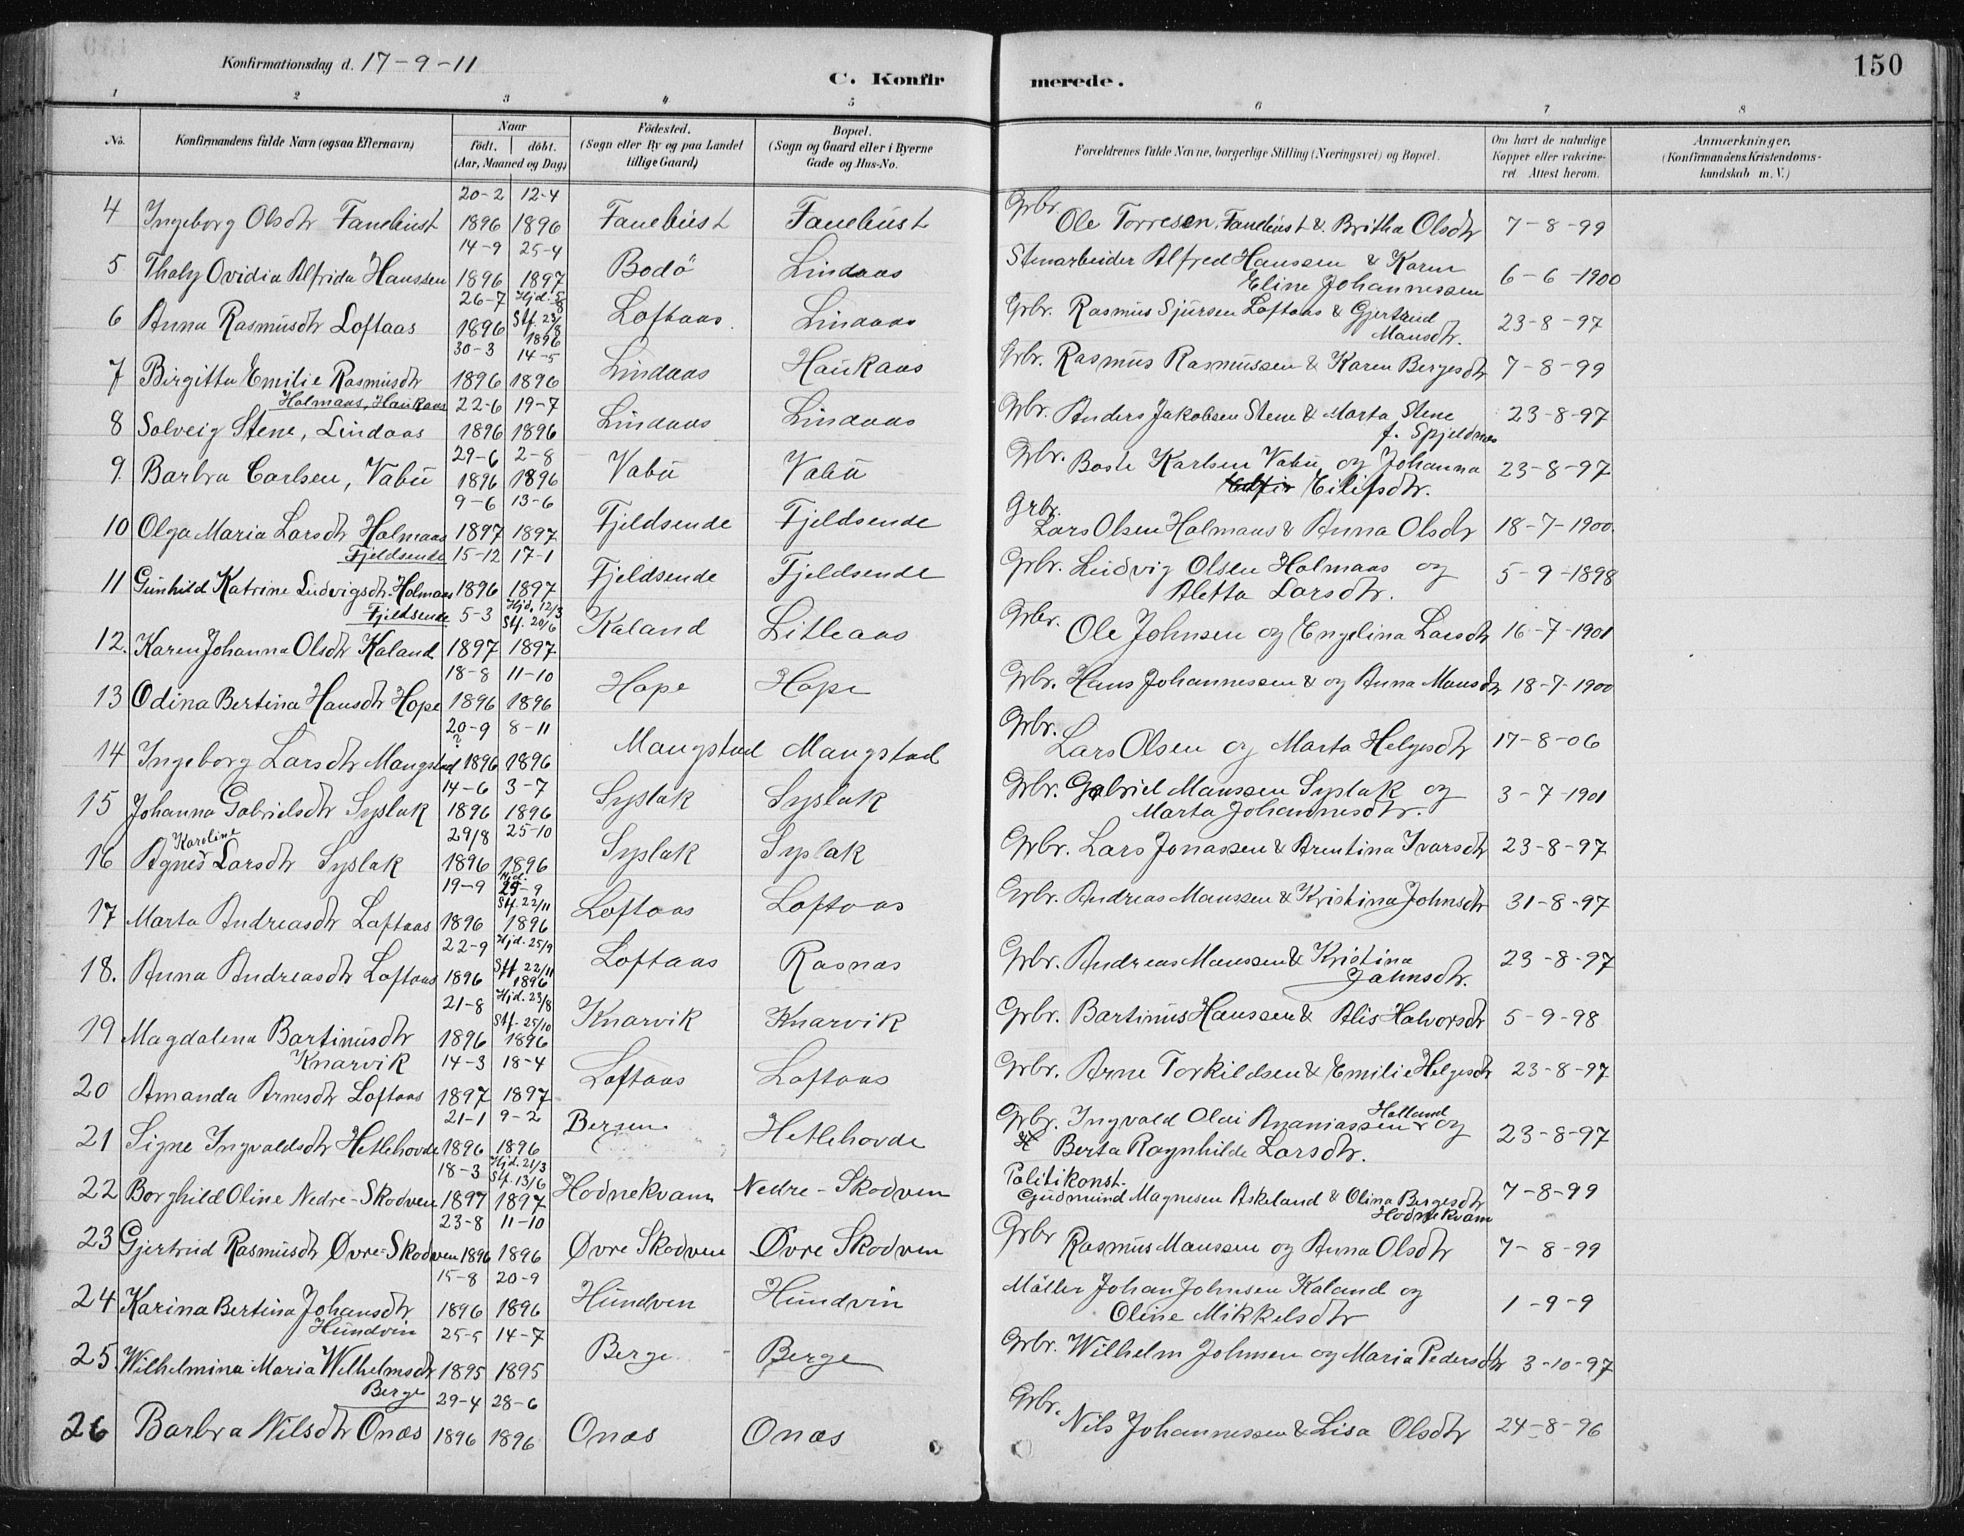 Konfirmationsdag d. 17-9-11
C. Konfirmerede.
150
1 2 3 4 5 6 7 8
No.
Konfirmandens fulde Navn (ogsaa Efternavn)
Naar
födt. döbt.
(Aar, Maaned og Dag)
Födested.
(Sogn eller By og paa Landet
tillige Gaard)
Bopæl.
(Sogn og Gaard eller i Byerne
Gade og Hus-No.
Forældrenes fulde Navne, borgerlige Stilling (Næringsvei) og Bopæl.
Om havt de naturlige
Kopper eller vakcine-
ret Attest herom.
Anmærkninger.
(Konfirmandens Kristendoms-
kundskab m. V.)
20-2 12-4
4 Ingeborg Olsdtr Fanebust 1896 1896 Fanebust Fanebust Grbr. Ole Torresen Fanebust & Britha Olsdtr 7-8-99
14-9 25-4
5 Thaly Ovidia Alfrida Hanssen 1896 1897 Bodö Lindaas Stenarbeider Alfred Hanssen & Karen
Eline Johannessen 6-6-1900
26-7 Hjd. 5/8
Stf. 23/8
6 Anna Rasmusdtr Loftaas 1896 1896 Loftaas Lindaas Grbr. Rasmus Sjursen Loftaas & Gjertrud
Mansdtr. 23-8-97
30-3 14-5
7 Birgitta Emilie Rasmusdtr 1896 1896 Lindaas Haukaas Grbr. Rasmus Rasmussen & Karen Bergesdtr 7-8-99
Holmaas, Haukaas 22-6 19-7
8 Solveig Stene, Lindaas 1896 1896 Lindaas Lindaas Grbr. Anders Jakobsen Stene & Marta Stene
f. Spjeldnes 23-8-97
29-6 2-8
9. Barbra Carlsen, Vabü 1896 1896 Vabü Vabü Grbr. Boste Karlsen Vabü og Johanna
Eilifsdtr. 23-8-97
9-6 13-6
10 Olga Maria Larsdtr Holmaas 1897 1897 Fjeldsende Fjeldsende Grbr. Lars Olsen Holmaas & Anna Olsdtr 18-7-1900.
Fjeldsende 15-12 17-1
11 Gunhild Katrine Ludvigsdtr. Holmaas 1896 1897 Fjeldsende Fjeldsende Grbr. Ludvig Olsen Holmaas og
Aletta Larsdtr. 5-9-1898
Fjeldsende 5-3 Hjd. 12/3
Stf. 20/6
12. Karen Johanna Olsdtr Kaland 1897 1897 Kaland Litleaas Grbr. Ole Johnsen og Engelina Larsdtr 16-7-1901
18-8 11-10
13 Odina Bertina Hansdtr Hope 1896 1896 Hope Hope Grbr. Hans Johannessen & og Anna Mansdtr 18-7-1900
20-9 8-11
?
14 Ingeborg Larsdtr Mangstad 1896 1896 Mangstad Mangstad Grbr. Lars Olsen og Marta Helgesdtr 17-8-06
14-6 3-7
15 Johanna Gabrielsdtr Syslak 1896 1896 Syslak Syslak Grbr. Gabriel Manssen Syslak og
Marta Johannesdtr. 3-7-1901
29/8 25-10
Karoline
16 Agnes Larsdtr Syslak 1896 1896 Syslak Syslak Grbr. Lars Jonassen & Arentina Ivarsdtr 23-8-97
19-9 Hjd. 25-9
Stf. 22/11
17 Marta Andreasdtr Loftaas 1896 1896 Loftaas Loftaas Grbr. Andreas Manssen & Kristina Johnsdtr 31-8-97
22-9 Hjd. 25/9
Stf. 22/11
18. Anna Andreasdtr Loftaas 1896 1896 Loftaas Rasnas Grbr. Andreas Manssen & Kristina
Johnsdtr. 23-8-97
21-8 Hjd. 23/8
Stf. 25/10
19 Magdalena Bartinusdtr 1896 1896 Knarvik Knarvik Grbr. Bartinus Hanssen & Alis Halvorsdtr 5-9-98
Knarvik 14-3 18-4
20 Amanda Arnesdtr Loftaas 1897 1897 Loftaas Loftaas Grbr. Arne Torkildsen & Emilie Helgesdtr 23-8-97
21-1 9-2
21 Signe Ingvaldsdtr Hetlehovde 1896 1896 Bergen Hetlehovde Grbr. Ingvald Olai Ananiassen Hatland og
Berta Ragnhilde Larsdtr. 23-8-97
18-3 Hjd. 21/3
Stf. 13/6
22 Borghild Oline Nedre-Skodven 1897 1897 Hodnekvam Nedre-Skodven Politikonst.
Gudmund Magnesen Askeland & Olina Bergesdtr
Hodnekvam 7-8-99
23-8 11-10
23 Gjertrud Rasmusdtr Øvre-Skodven 1896 1896 Øvre Skodven Øvre Skodven Grbr Rasmus Manssen og Anna Olsdtr 7-8-99
15-8 20-9
24 Karina Bertina Johansdtr 1896 1896 Hundven Hundvin Möller Johan Johnsen Kaland og
Oline Mikkelsdtr 1-9-9
Hundvin 25-5 14-7
25. Wilhelmina Maria Wilhelmsdtr 1895 1895 Berge Berge Grbr. Wilhelm Johnsen og Maria Pedersdtr 3-10-97
Berge 29-4 28-6
26 Barbra Nilsdtr Onæs 1896 1896 Onæs Onæs Grbr. Nils Johannessen & Lisa Olsdtr 24-8-96